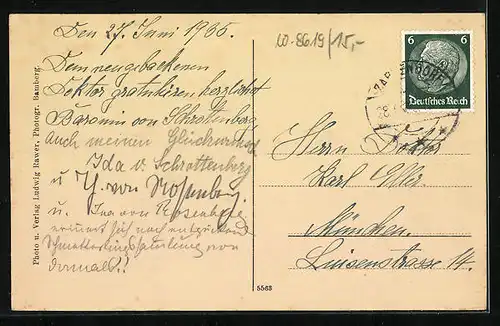 Den 27. Juni 1935.
Dem neugebackenen
Doktor gratulieren herzlichst
Baronin von Schrottenberg
Auch meinen Glückwunsch
Ida v. Schrottenberg
u. von Rosenberg.
u. Ina von Rosenberg
erinnert sich noch
Schmetterlingssammlung von
damals!!
Photo u. Verlag Ludwig Rawer, Photogr. Bamberg.
5563
W-8619/15,-
6 6
Deutsches Reich
Herrn Doktor
Karl
München.
Luisenstrasse 14.